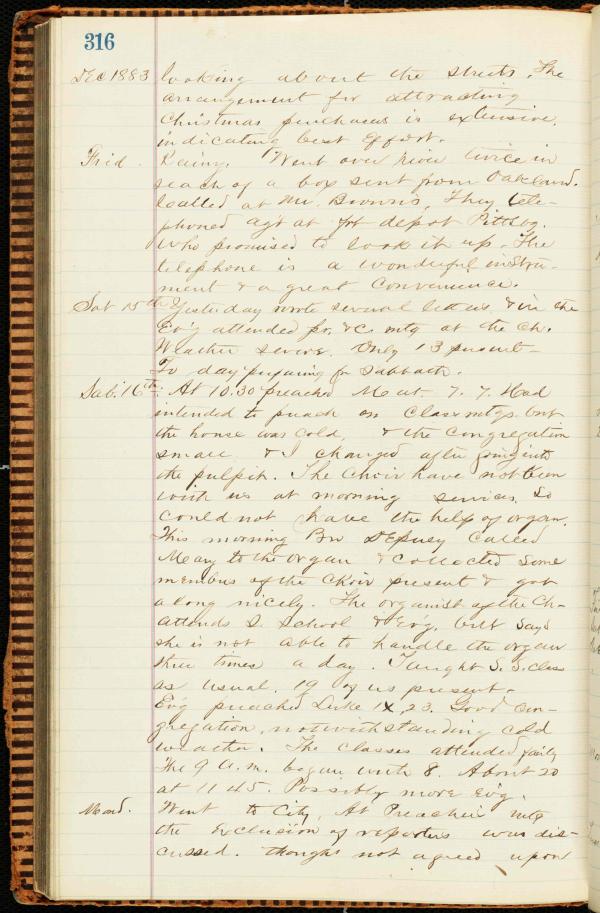 316
Dec 1883 looking about the streets. The
arrangement for attracting
Christmas purchases is extensive,
indicating best effort.
Frid. Rainy. Went over river twice in
seach of a box sent from Oakland.
Called at Mr. Browns, They tele-
phoned ag't at frt depot Pittsbg.
who promised to look it up. The
telephone is a wonderful instru-
ment & a great convenience.
Sat 15th Yesterday wrote several letters & in the
Ev'g attended pr. &c. mtg at the Ch.
Weather severe. Only 13 present-
To day preparing for Sabbath.
Sab. 16th. At 10.30 preached Mat. 7. 7. Had
intended to preach on Class mtgs. but
the house was cold, & the congregation
small & I changed after going into
the pulpit. The Choir have not been
with us at morning services, So
could not have the help of organ.
This morning Bro DePuey called
Mary to the organ & collected some
members of the Choir present & got
along nicely. The organist of the Ch-
attends S. School & Ev'g, but says
she is not able to handle the organ
three times a day. Taught S. S. class
as usual. 19 of us present-
Ev'g preached Luke IX, 23. Good con-
gregation, notwithstanding cold
weather. The classes attended fairly
The 9 A.m. began with 8. About 20
at 11 45. Possibly more Ev'g.
Mond. Went to City, At Preachers mtg
the exclusion of reporters was dis-
cussed. though not agreed upon